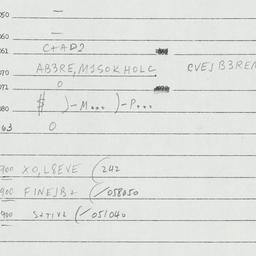 050 —
060 —
061 C+AD2
070 AB3RE,M1SOKHOLC CVEJB3REM
071 0
080 $ )-M... )-P...
063 0
900 XO,L8EVE (242
900 FINEJB+ (/058050
900 S+TIVE (/051040